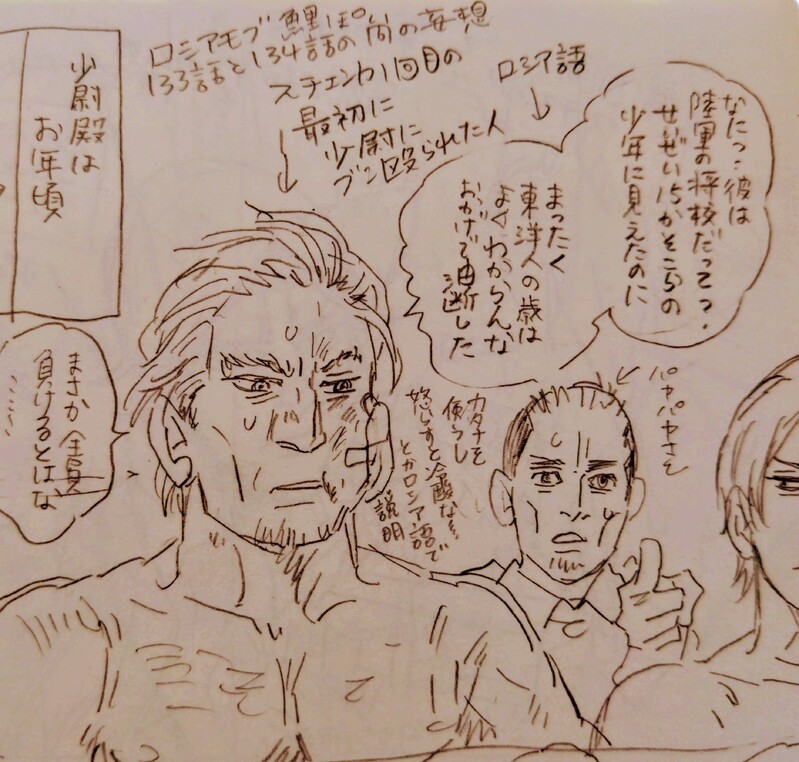 ロシアモブ鯉ぽ。
133話と134話の間の妄想
スチェンカ1回目の
最初に
少尉に
ブン殴られた人
ロシア語
なにっ…彼は
陸軍の将校だって?
せいぜい15かそこらの
少年に見えたのに
まったく
東洋人の歳は
よくわからんな
おかげで油断した
少尉殿は
お年頃
パヤパヤさん
カタナを
使うし
怒らすと冷酷な…
とかロシア語で
説明
まさか全員
負けるとはな